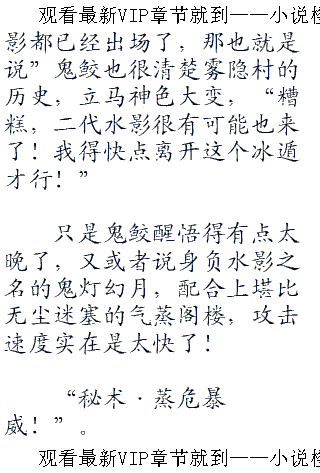 观看最新VIP章节就到——小说检
影都已经出场了，那也就是
说”鬼鲛也很清楚雾隐村的
历史，立马神色大变，“糟
糕，二代水影很有可能也来
了！我得快点离开这个冰遁
才行！”
只是鬼鲛醒悟得有点太
晚了，又或者说身负水影之
名的鬼灯幻月，配合上堪比
无尘迷塞的气蒸阁楼，攻击
速度实在是太快了！
“秘术·蒸危暴
威！”。
观看最新VIP章节就到——小说检